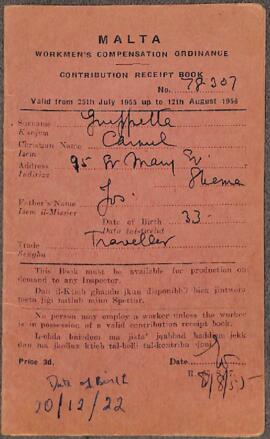 MALTA
WORKMEN'S COMPENSATION ORDINANCE
CONTRIBUTION RECEIPT BOOK
No. 78307
Valid from 25th July 1955 up to 12th August 1956
Surname
Kunjom
Christian Name
Isem
Address 95 St Mary St.
Indirizz Sliema
Father's Name Jos.
Isem il-Missier
Date of Birth 33
Data tat-twelid
Trade Traveller
Sengħa
This Book must be available for production on
demand to any Inspector.
Dan il-Ktieb għandu ikun disponibbli biex jintwera
meta jiġi mitlub minn Spettur.
No person may employ a worker unless the worker
is in possession of a valid contribution receipt book.
L-ebda ħaddiem ma jista' jaħdem jekk
ma jkollux ktieb tal-
Price 3d. Date
8/8/55
Date of Birth
20/12/22